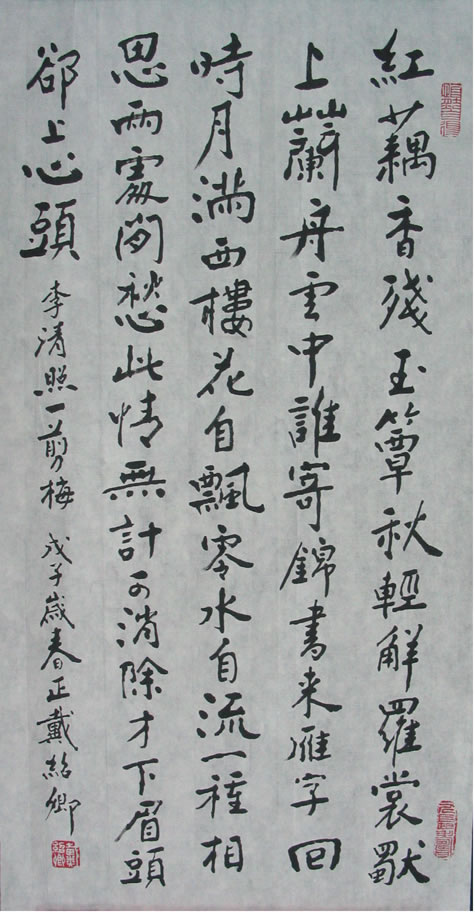 紅藕香殘玉簟秋輕解羅裳獨
上蘭舟雲中誰寄錦書来雁字回
時月滿西樓花自飄零水自流一種相
思兩處閒愁此情無計可消除才下眉頭
卻上心頭 李清照一剪梅 戊子歲春正戴紹卿